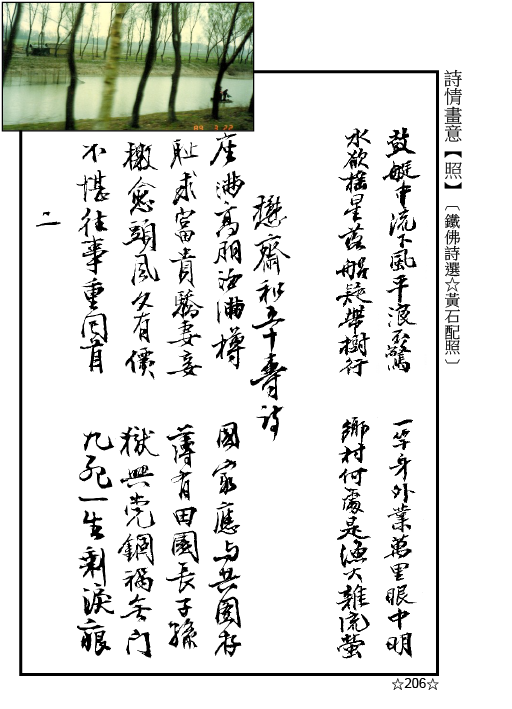 詩情畫意【照】〔鐵佛詩選☆黃石配照〕
鼓艇中流下風平浪不驚
一竿身外業萬里眼中明
水欲搖星落船疑帶樹行
鄉村何處是漁火雜流螢
齋五十壽詩
座滿高朋酒滿樽
國家應与共圖存
恥求富貴驕妻妾
薄有田園長子孫
檄愈頭風久有價
獄興党錮禍無门
不堪往事重回首
九死一生剩淚痕
二
☆206☆